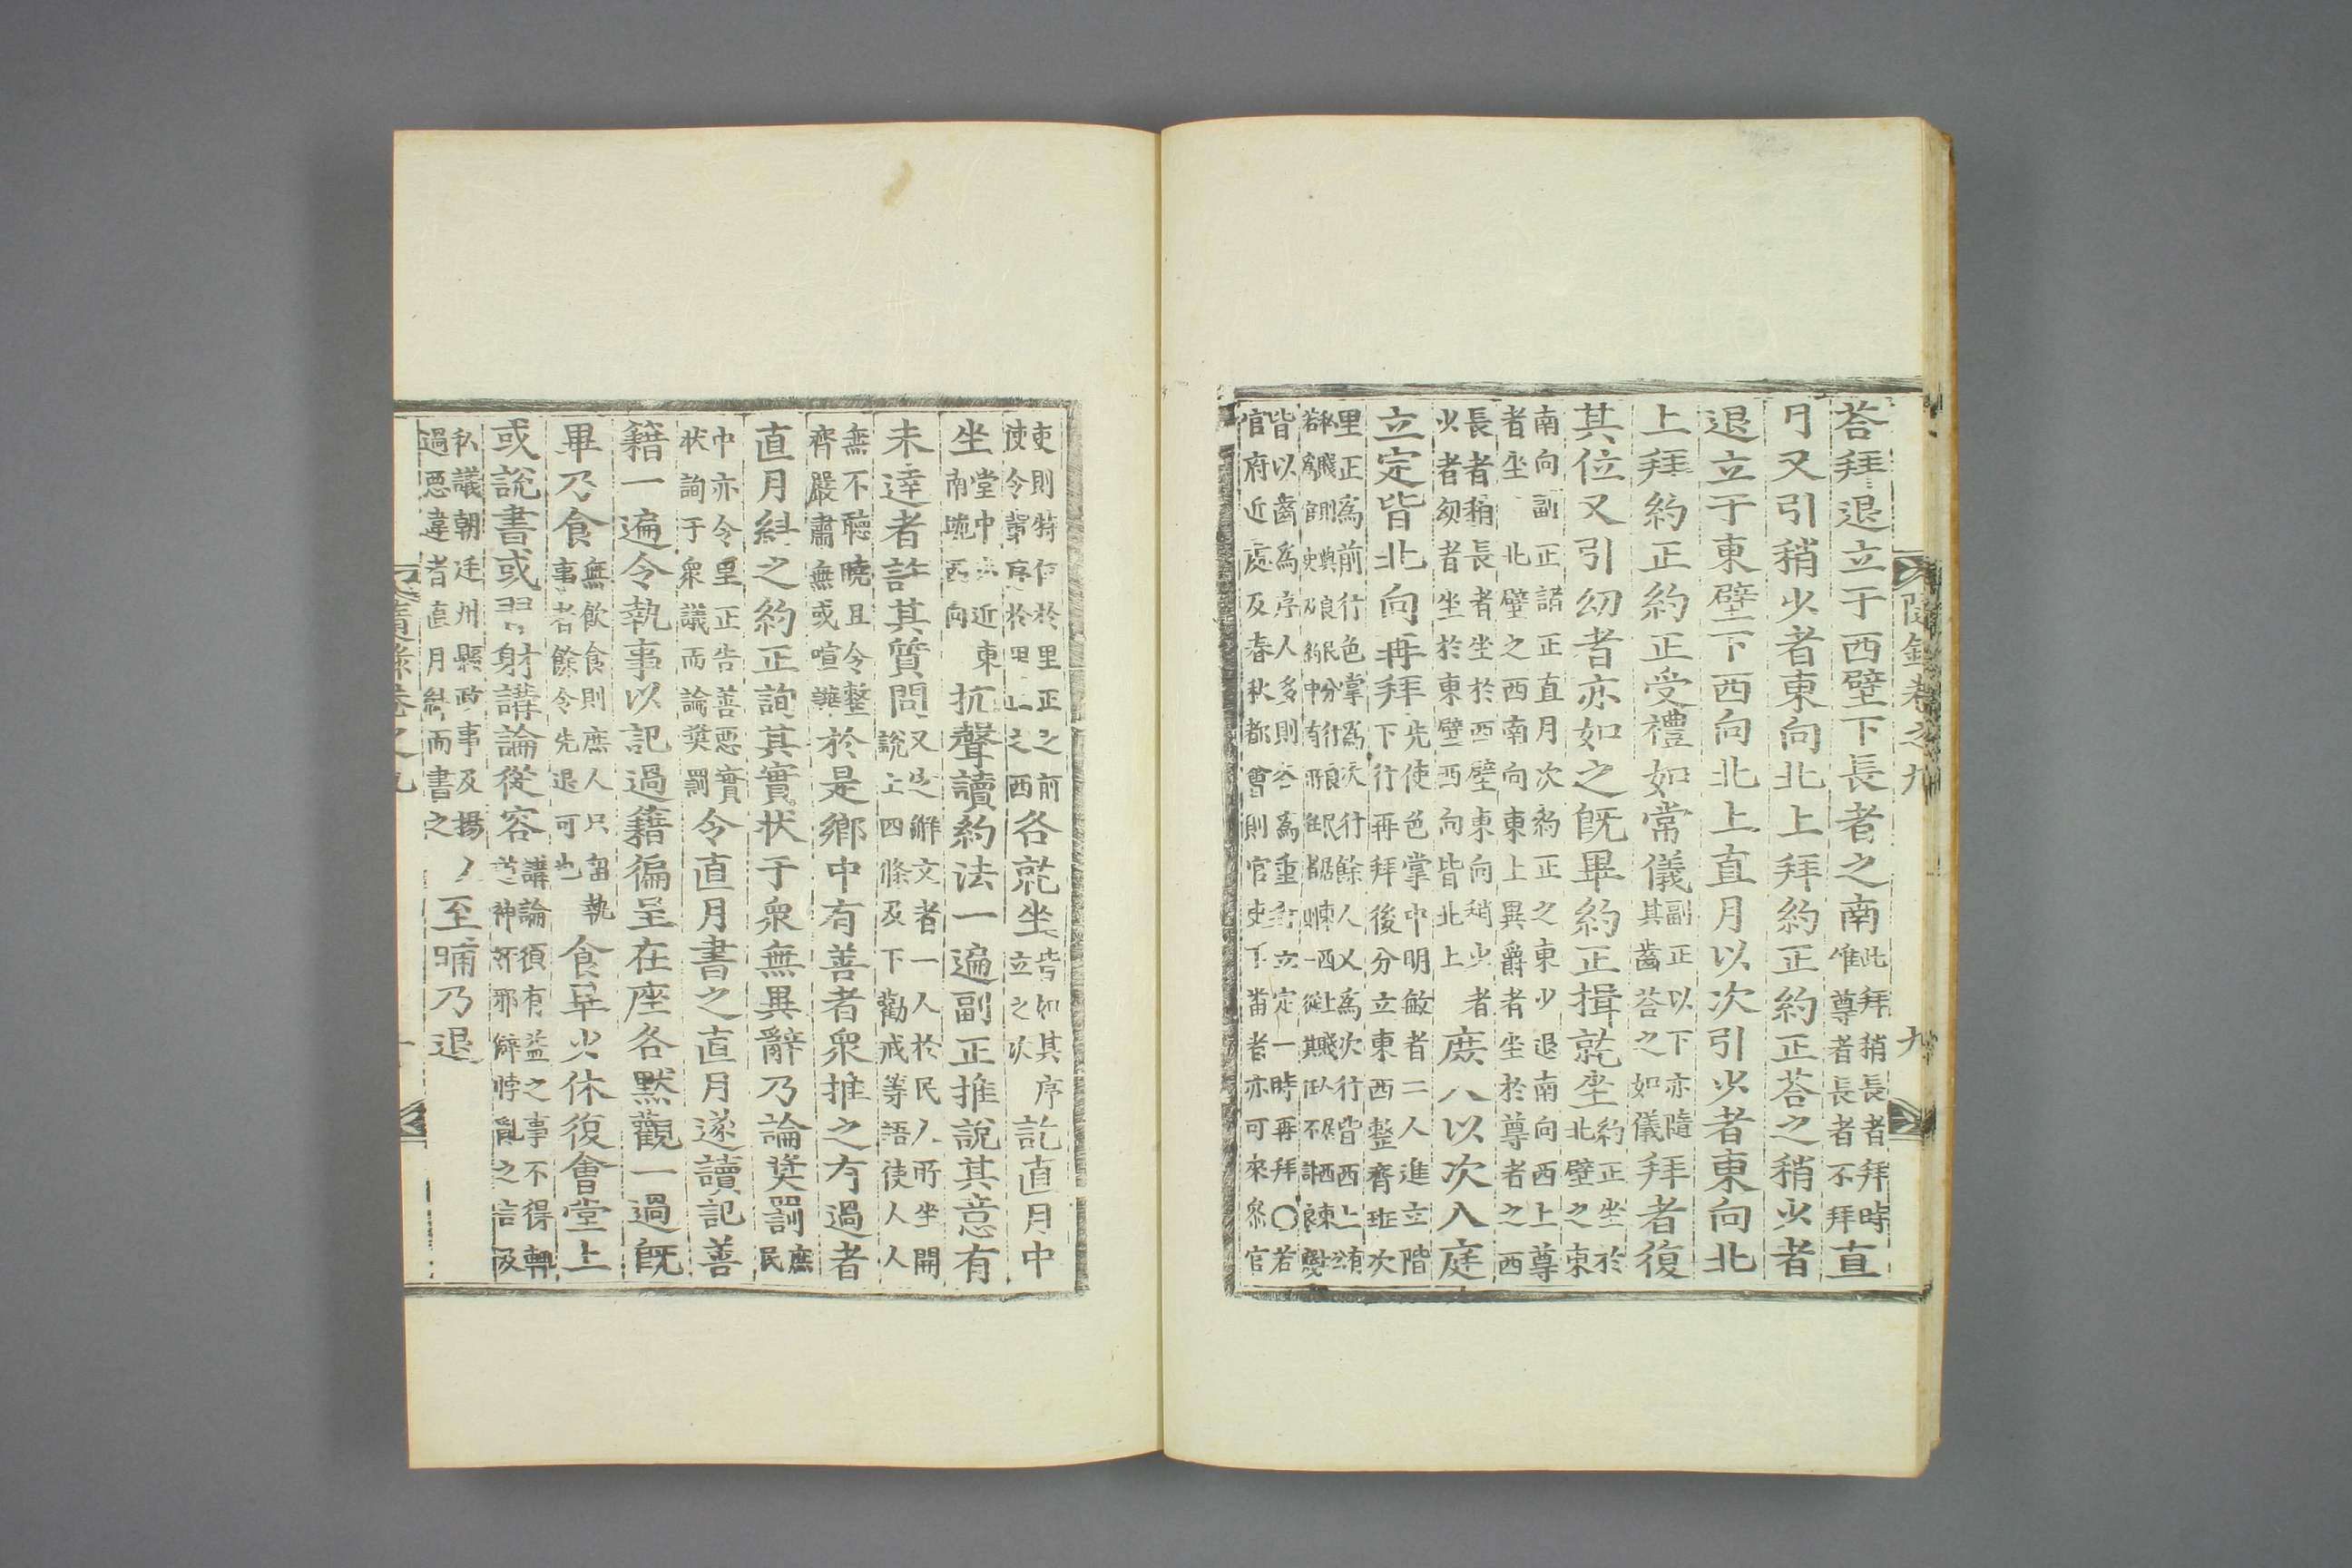 隨錄卷之九
九
答拜退立于西壁下長者之南此拜稍長者拜時惟尊者長者不拜直
月又引稍少者東向北上拜約正約正答之稍少者
退立于東壁下西向北上直月以次引少者東向北
上拜約正約正受禮如常儀副正以下亦隨其齒答之如儀拜者復
其位又引幼者亦如之旣畢約正揖就坐約正坐於北壁之東
南向副正諸正直月次約正之東少退南向西上尊者坐北壁之西南向東上異爵者坐於尊者之西
長者稍長者坐於西壁東向稍少者少者幼者坐於東壁西向皆北上庶人以次入庭
立定皆北向再拜先使色掌中明敏者二人進立階下行再拜後分立東西整齊班次
里正爲前行色掌爲次行餘人又爲次行皆西上
皆以齒爲序人多則亦爲重行立定一時再拜○若官府近處及春秋都會則官吏下番者亦可來參官
吏則特位於里正之前使令輩序於里正之西各就坐皆如其序立之次訖直月中
坐堂中近東南端西向抗聲讀約法一遍副正推說其意有
未達者許其質問又選解文者一人於民人所坐開說上四條及下勸戒等語使人人
無不聽曉且令整齊嚴肅無或喧譁於是鄕中有善者衆推之有過者
直月糾之約正詢其實狀于衆無異辭乃論奬罰庶民
中亦令里正告善惡實狀詢于衆議而論奬罰令直月書之直月遂讀記善
籍一遍令執事以記過籍徧呈在座各默觀一過旣
畢乃食無飮食則庶人只留執事者餘令先退可也食畢少休復會堂上
或說書或習射講論從容講論須有益之事不得輒道神怪邪僻悖亂之言及
私議朝廷州縣政事及揚人過惡違者直月糾而書之至晡乃退
隨錄卷之九